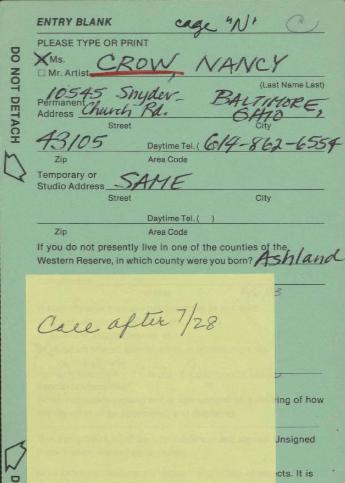 ENTRY BLANK cage "N" C
PLEASE TYPE OR PRINT
DO NOT DETACH
X Ms.
□ Mr. Artist CROW, NANCY
(Last Name Last)
Permanent Address 10545 Snyder-Church Rd. BALTIMORE, OHIO
Street City
43105 Daytime Tel. (614-862-6554
Zip Area Code
Temporary or
Studio Address SAME
Street City
Daytime Tel. ( )
Zip Area Code
If you do not presently live in one of the counties of the
Western Reserve, in which county were you born? Ashland
Call after 7/28
ing of how
Unsigned
ects. It is